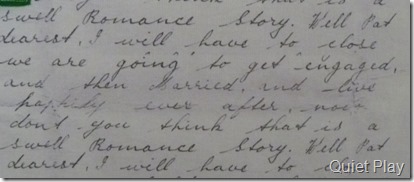 that is a
swell Romance Story. Well Pat
dearest, I will have to close
we are going to get engaged,
and then Married, and live
happily ever after, now
dont you think that is a
swell Romance Story. Well Pat
dearest, I will have to close
Quiet Play